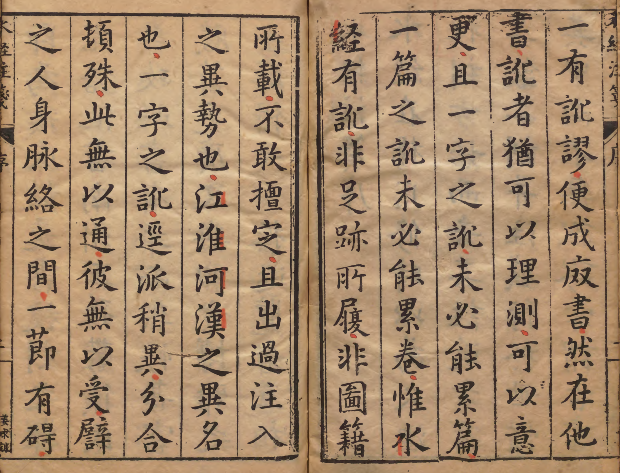 一有訛謬便成廢書然在他
書訛者猶可以理測可以意
更且一字之訛未必能累篇
一篇之訛未必能累卷惟水
經有訛非足跡所履非圖籍
所載不敢擅定且出過注入
之異勢也江淮河漢之異名
也一字之訛逕派稍異分合
頓殊此無以通彼無以受譬
之人身脉絡之間一節有碍
水經注箋
序